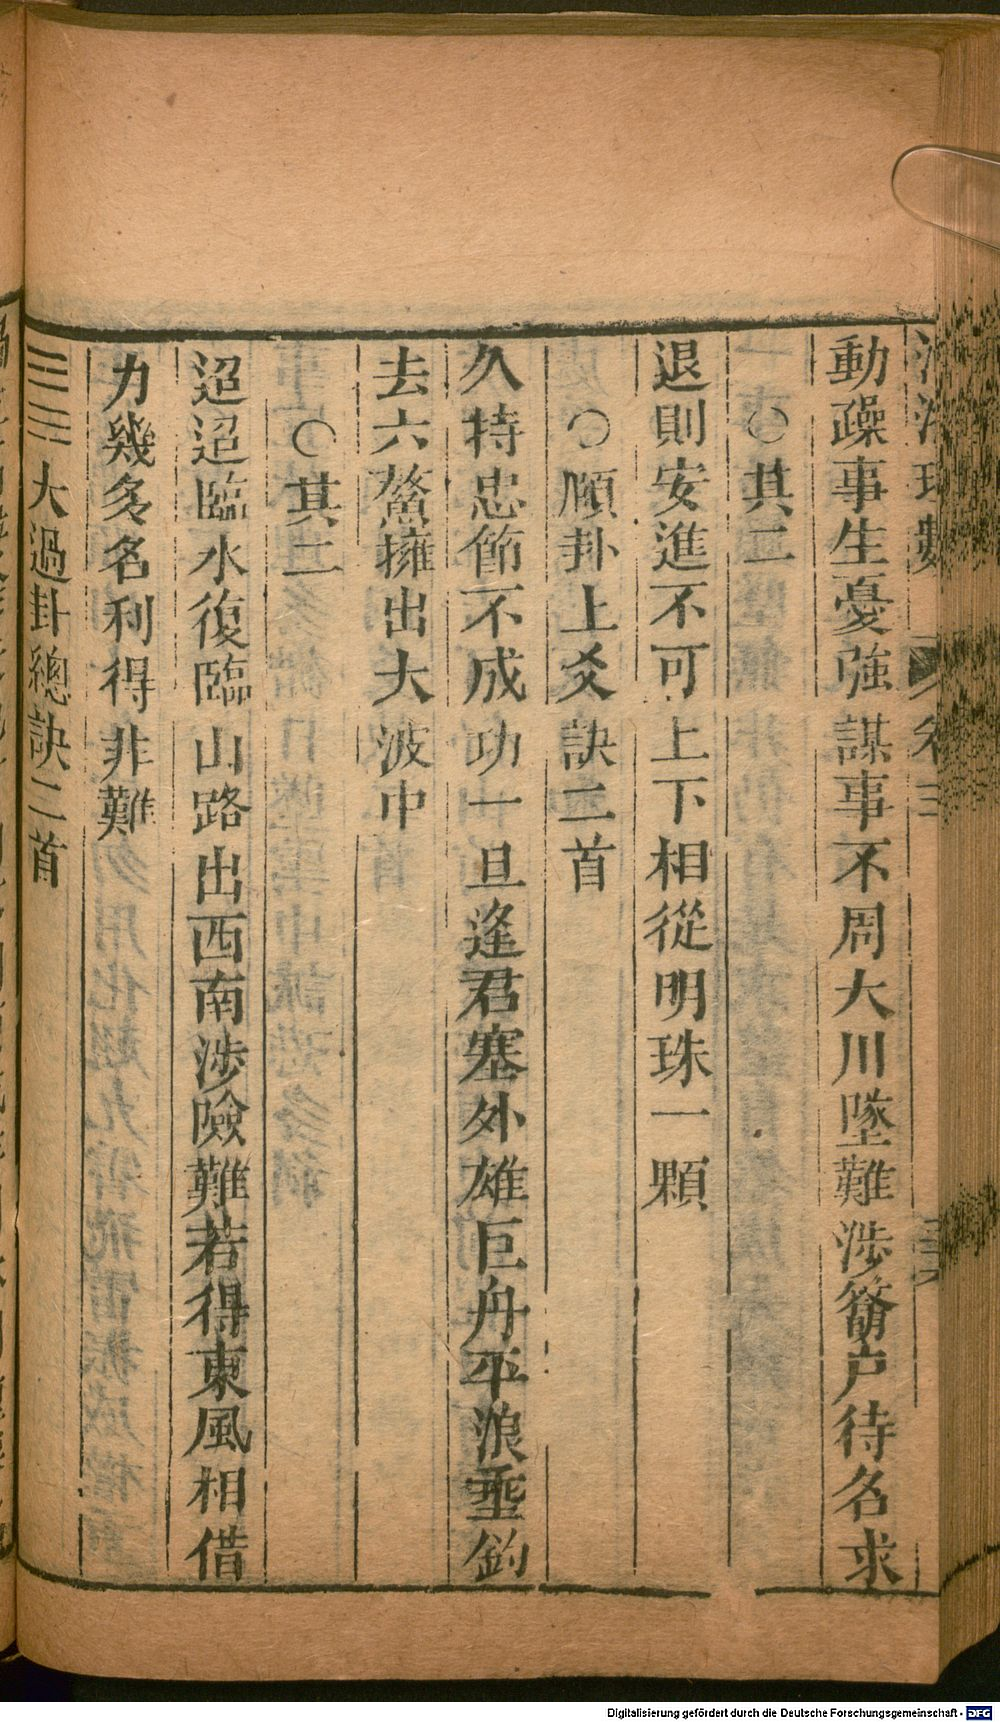 動躁事生憂強謀事不周大川墜難涉簷户待名求
○其二
退則安進不可上下相從明珠一顆
○頤卦上爻訣二首
久特忠節不成功一旦逢君塞外雄巨舟平浪垂鈎
去六鰲擁出大波中
○其二
迢迢臨水復臨山路出西南涉險難若得東風相借
力幾多名利得非難
大過卦總訣二首
Digitalisierung gefördert durch die Deutsche Forschungsgemeinschaft - DFG